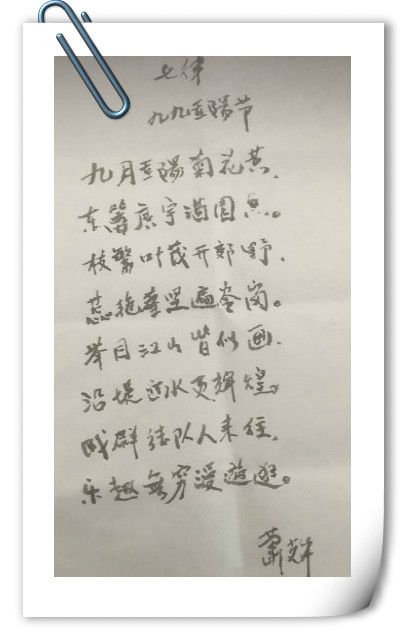 七律
九九重陽节
九月重陽菊花黄.
东篱宇满园香。
枝繁叶茂开郊野.
蕊艳遍岗。
举目江山皆似画.
沿堤水更辉煌。
成群结队人来往.
乐趣無穷漫遊逛。
萧